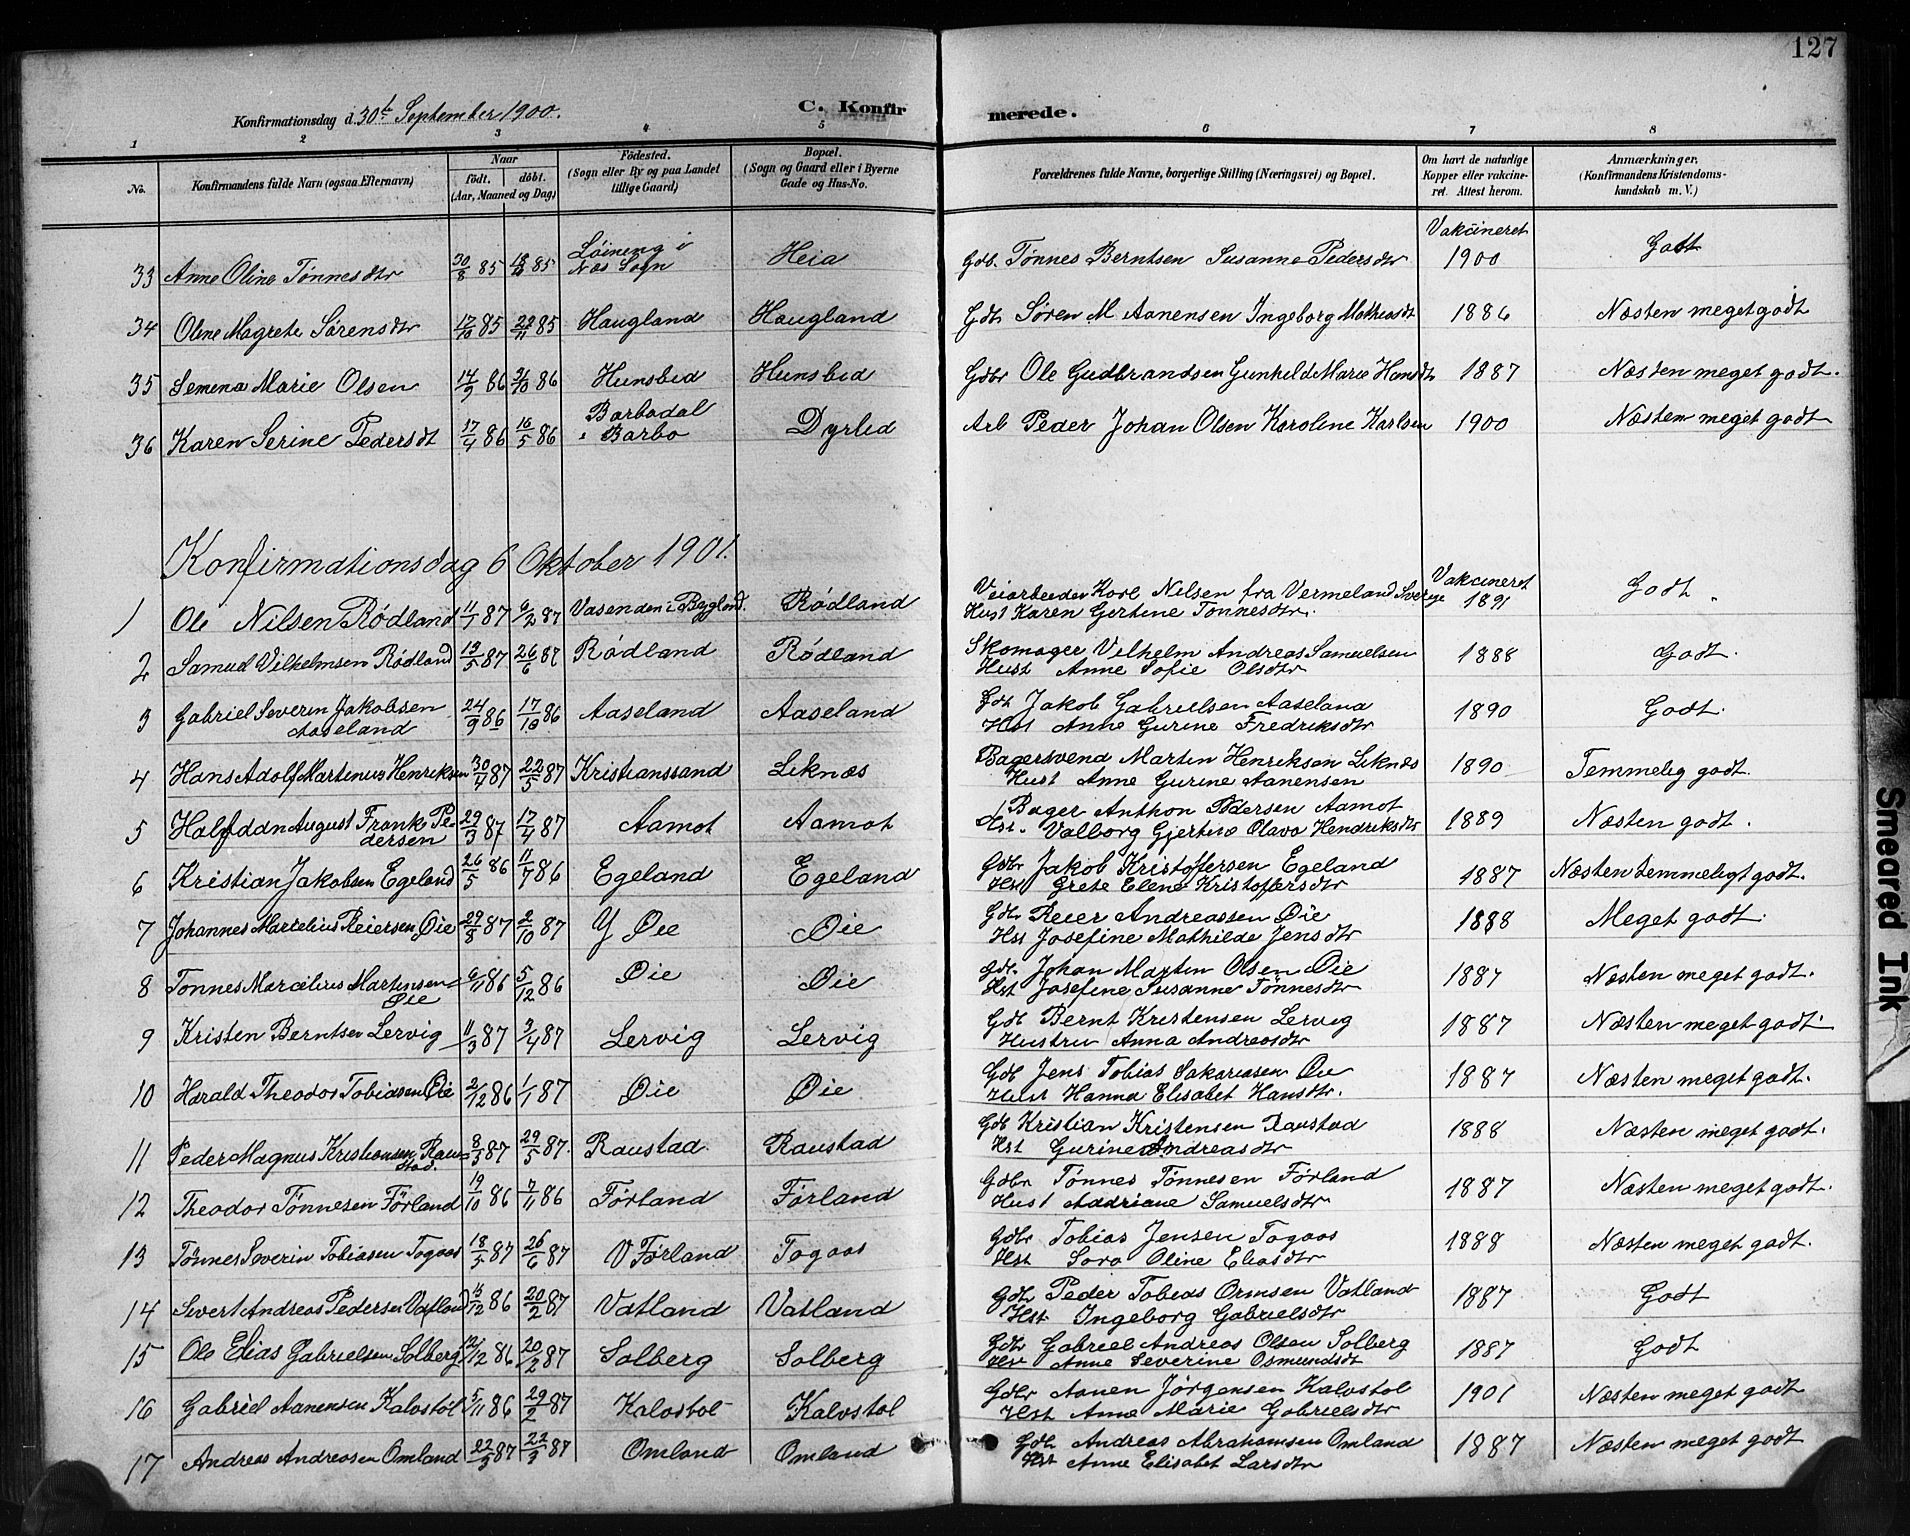 127
Konfirmationsdag d. 30te September 1900.
C. Konfirmerede.
1 2 3 4 5 6 7 8
No.
Konfirmandens fulde Navn (ogsaa Efternavn)
Naar
født. døbt.
(Aar, Maaned og Dag)
Fødested.
(Sogn eller By og paa Landet
tillige Gaard)
Bopæl.
(Sogn og Gaard eller i Byerne
Gade og Hus-No.
Forældrenes fulde Navne, borgerlige Stilling (Næringsvei) og Bopæl.
Om havt de naturlige
Kopper eller vakcineret.
Attest herom.
Anmærkninger.
(Konfirmandens Kristendomskundskab
m. V.)
Vakcineret
33 Anne Oline Tønnesdtr 30/8 85 85 Løineng i Næs Sogn Heia Gdb. Tønnes Berntsen Susanne Pedersdtr 1900 Godt
34 Oline Magrete Sørensdtr 17/10 85 22/11 85 Haugland Haugland Gdb Søren M Aanensen Ingeborg Mathiasdt 1886 Næsten meget godt
35 Semena Marie Olsen 14/9 86 31/10 86 Hunsbed Hunsbed Gdbr Ole Gudbrandsen Gunhilde Marie Hansdtr 1887 Næsten meget godt.
36 Karen Serine Pedersdt 17/4 86 16/5 86 Barbodal i Barbo Dyrlid Arb Peder Johan Olsen Karoline Karlsen 1900 Næsten meget godt
Konfirmationsdag 6 Oktober 1901.
Vakcineret
1 Ole Nilsen Rødland 11/1 87 6/2 87 Vasenden i Bygland. Rødland Veiarbeider Karl Nilsen fra Vermeland Sverige 1891 Godt
Hust Karen Gertine Tønnesdtr.
2 Samuel Vilhelmsen Rødland 13/5 87 26/6 87 Rødland Rødland Skomager Vilhelm Andreas Samuelsen 1888 Godt.
Hust Anne Sofie Olsdtr
3 Gabriel Severin Jakobsen Aaseland 24/9 86 17/10 86 Aaseland Aaseland Gdb Jakob Gabrielsen Aaseland 1890 Godt.
Hust Anne Gurine Fredriksdtr
4 Hans Adolf Martinus Henriksen 30/4 87 22/5 87 Kristianssand Leknæs Bagersvend Martin Henriksen Leknæs 1890 Temmelig godt.
Hust Anne Gurine Aanensen
5 Halfdan August Frank Pedersen 29/3 87 17/4 87 Aamot Aamot Bager Anthon Pedersen Aamot 1889 Næsten godt.
Hst. Valborg Gjertine Olava Hendriksdtr
6 Kristian Jakobsen Egeland 26/5 86 11/7 86 Egeland Egeland Gdbr Jakob Kristoffersen Egeland 1887 Næsten temmeligt godt.
Hst Grete Elene Kristoffersdtr
7 Johannes Martelius Reiersen Øie 29/8 87 2/10 87 Y Øie Øie Gdbr Reier Andreassen Øie 1888 Meget godt.
Hst Josefine Mathilde Jensdtr
8 Tønnes Marcelius Martinsen Øie 6/11 86 5/12 86 Øie Øie Gdb. Johan Martin Olsen Øie 1887 Næsten meget godt.
Hst Josefine Susanne Tønnesdtr
9 Kristen Berntsen Lervig 11/3 87 3/4 87 Lervig Lervig Gdb Bernt Kristensen Lervig 1887 Næsten meget godt.
Hustru Anna Andreasdtr
10 Harald Theodor Tobiasen Øie 2/12 86 1/1 87 Øie Øie Gdb Jens Tobias Sakariasen Øie 1887 Næsten meget godt.
Hust Hanna Elisabet Hansdtr.
11 Peder Magnus Kristiansen Raustad. 8/5 87 29/5 87. Raustad. Raustad Gdb Kristian Kristensen Raustad 1888 Næsten meget godt.
Hst Gurine Andreasdtr
12 Theodor Tønnesen Førland 19/10 86 7/11 86 Førland Førland Gdbr Tønnes Tønnesen Førland 1887 Næsten meget godt.
Hust Aadriane Samuelsdtr
13 Tønnes Severin Tobiasen Togaas 18/5 87 26/6 87 V Førland Togaas Gdbr Tobias Jensen Togaas 1888 Næsten meget godt.
Hst Sara Oline Eliasdtr
14 Sivert Andreas Pedersen Vatland 86 20/2 87 Vatland Vatland Gdb Peder Tobias Ormsen Vatland 1887 Godt
Hst. Ingeborg Gabrielsdtr
15 Ole Elias Gabrielsen Solberg 86 20/2 87 Solberg Solberg Gdb Gabriel Andreas Olsen Solberg 1887 Godt
Hst Anne Severine Osmundsdt
16 Gabriel Aanensen Kalvstøl 5/11 86 29/2 87 Kalvstol Kalvstol Gdbr Aanen Jørgensen Kalvstol 1901 Næsten meget godt
Hst Anne Marie Gabrielsdtr
17 Andreas Andreasen Omland 22/3 87 87 Omland Omland Gdb Andreas Abrahamsen Omland 1887 Næsten meget godt
Hst Anne Elisabet Larsdtr
Smeared Ink